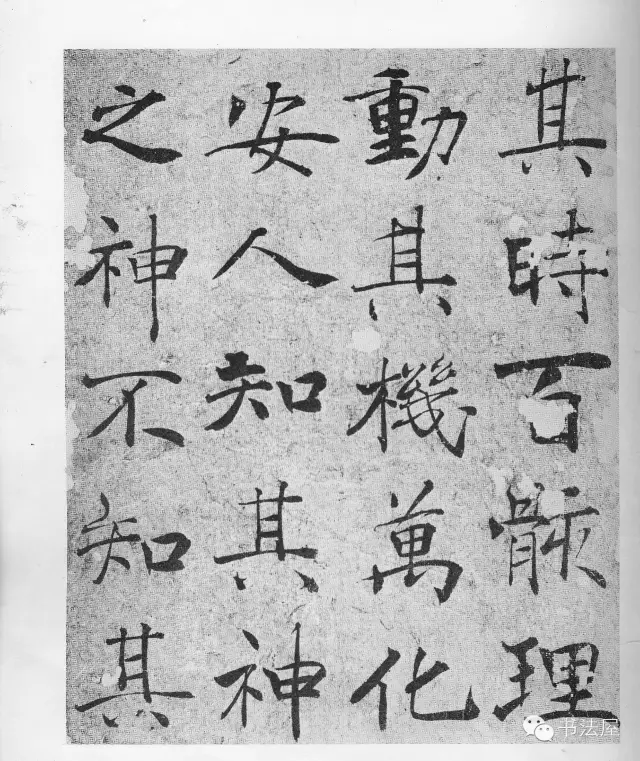 其時百骸理
動其機萬化
安人知其神
之神不知其
书法屋